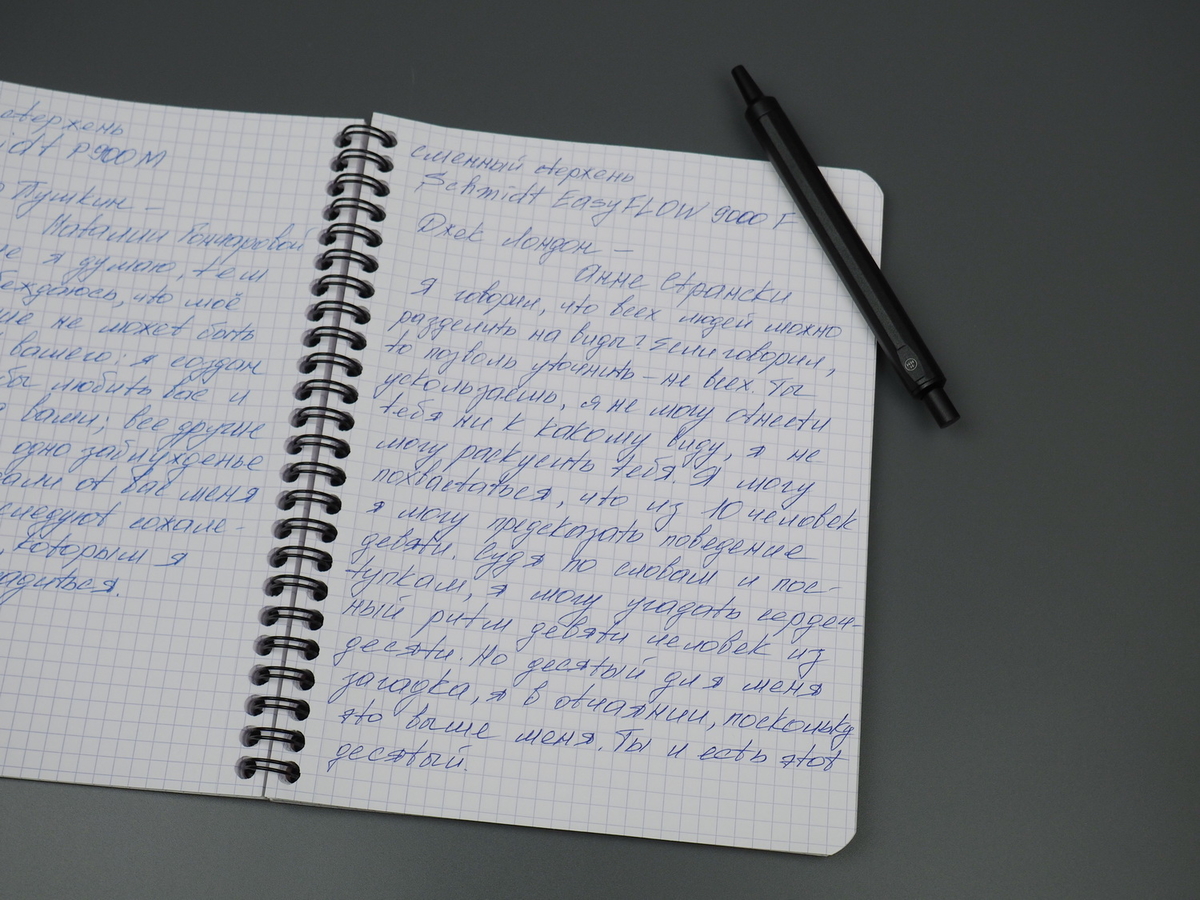 стержень
P900M
Пушкин –
Наталии Гончаровой
я думаю, тем
что моё
не может быть
вашего; я создан
любить вас и
вами; все другие
одно заблужденье
от вас меня
следуют сожале-
которым я
сменный стержень
Schmidt EasyFLOW 9000 F
Джек Лондон –
Анне Странски
Я говорил, что всех людей можно
разделить на виды? Если говорил,
то позволь уточнить – не всех. Ты
ускользаешь, я не могу отнести
тебя ни к какому виду, я не
могу раскусить тебя. Я могу
похвастаться, что из 10 человек
я могу предсказать поведение
девяти. Судя по словам и пос-
тупкам, я могу угадать сердеч-
ный ритм девяти человек из
десяти. Но десятый для меня
загадка, я в отчаянии, поскольку
это выше меня. Ты и есть этот
десятый.